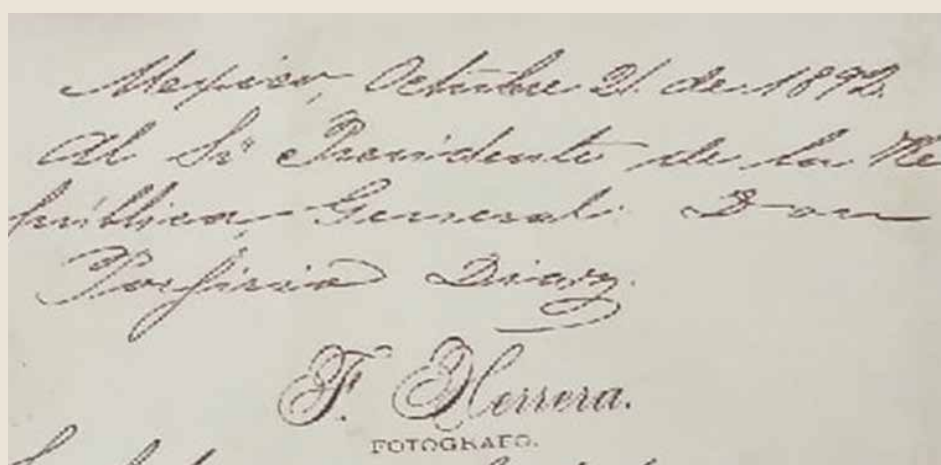 Mexico, Octubre 21 de 1892.
Al Sr Presidente de la Re
pública General Don
Porfirio Diaz.
F. Herrera.
FOTOGRAFO.